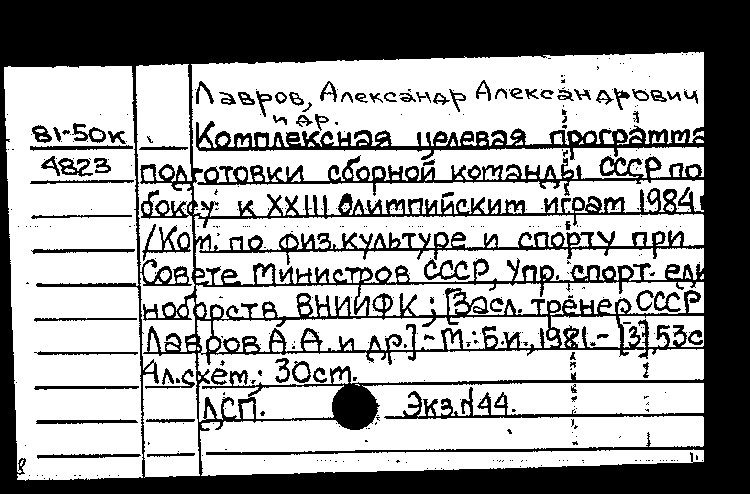 Лавров, Александр Александрович
и др.
81-50к Комплексная целевая программа
4823 подготовки сборной команды СССР по
боксу к XXIII Олимпийским играм 1984
/Ком. по физ. культуре и спорту при
Совете Министров СССР, Упр. спорт. еди
ноборств, ВНИИФК; [Засл. тренер СССР
Лавров А.А. и др.].- М.: Б.и., 1981.- [3], 53с
4л.схем.; 30см.
ДСП. Экз.N44.